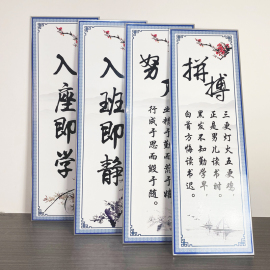 入座即学
入班即静
努
业精于勤而荒于嬉
行成于思而毁于随。
拼搏
三更灯火五更鸡
正是男儿读书时。
黑发不知勤学早,
白首方悔读书迟。